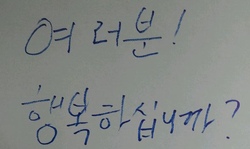 여러분!
행복하십니까?